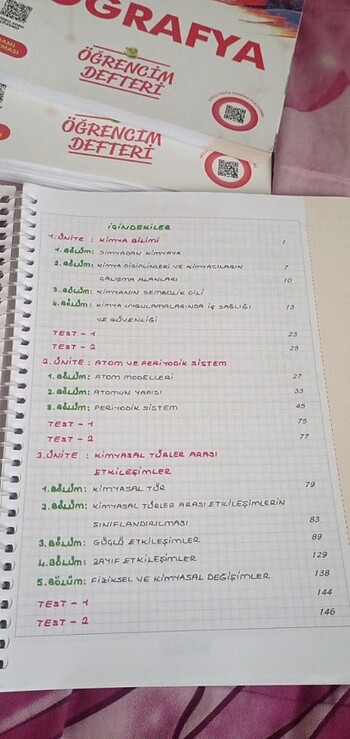 OĞRAFYA
ÖĞRENCİM
DEFTERİ
ÖĞRENCİM
DEFTERİ
İÇİNDEKİLER
1. ÜNİTE : KİMYA BİLİMİ 1
1. BÖLÜM: SİMYADAN KİMYAYA
2. BÖLÜM: KİMYA DİSİPLİNLERİ VE KİMYACILARIN 7
ÇALIŞMA ALANLARI 10
3. BÖLÜM: KİMYANIN SEMBOLİK DİLİ
4. BÖLÜM: KİMYA UYGULAMALARINDA İŞ SAĞLIĞI 13
VE GÜVENLİĞİ
TEST - 1 23
TEST - 2 25
2. ÜNİTE : ATOM VE PERİYODİK SİSTEM
1. BÖLÜM: ATOM MODELLERİ 27
2. BÖLÜM: ATOMUN YAPISI 33
3. BÖLÜM: PERİYODİK SİSTEM 45
TEST - 1 75
TEST - 2 77
3. ÜNİTE : KİMYASAL TÜRLER ARASI
ETKİLEŞİMLER
1. BÖLÜM: KİMYASAL TÜR 79
2. BÖLÜM: KİMYASAL TÜRLER ARASI ETKİLEŞİMLERİN
SINIFLANDIRILMASI 83
3. BÖLÜM: GÜÇLÜ ETKİLEŞİMLER 89
4. BÖLÜM: ZAYIF ETKİLEŞİMLER 129
5. BÖLÜM: FİZİKSEL VE KİMYASAL DEĞİŞİMLER 138
TEST - 1 144
TEST - 2 146